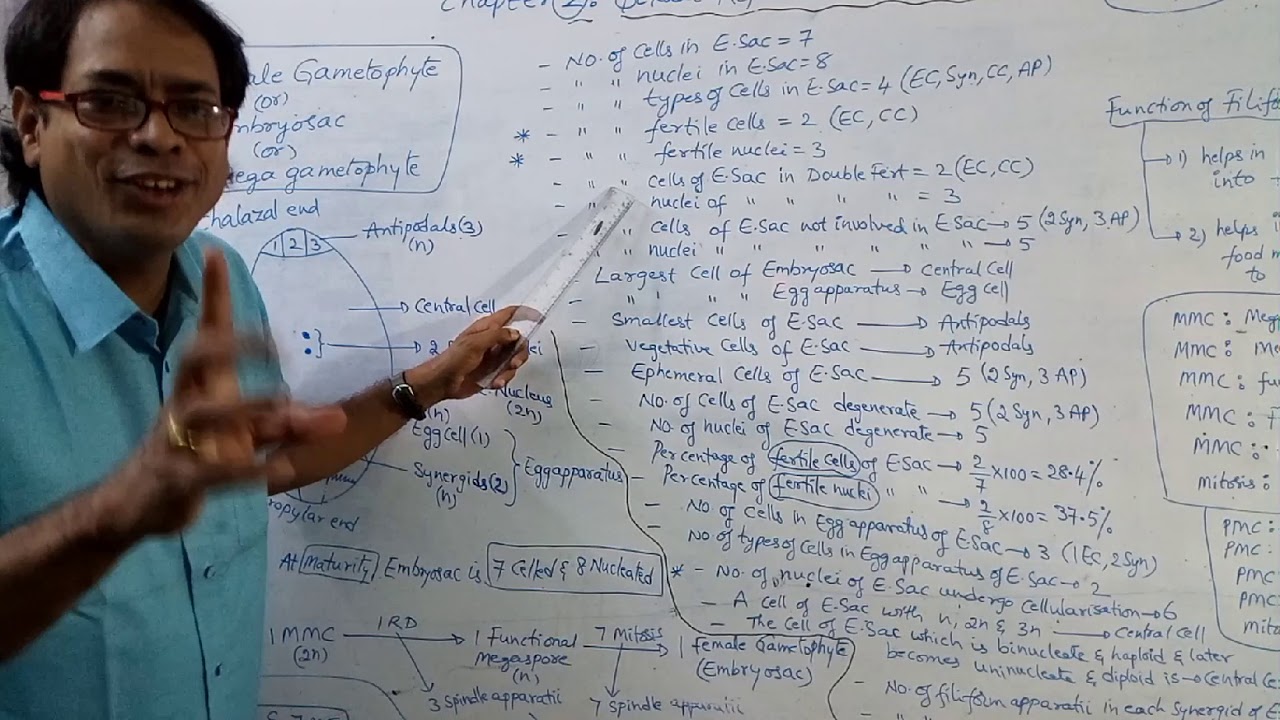 Chapter (2):
Gametophyte
(or)
Embryosac
(or)
Mega gametophyte
Chalazal end
1 2 3
Antipodals (3)
(n)
Central cell
2
Nucleus
(2n)
(n)
Egg cell (1)
Synergids (2)
(n)
Egg apparatus
pylar end
At maturity Embryosac is 7 Celled & 8 Nucleated
1 MMC
(2n)
1 RD
1 Functional
megaspore
(n)
7 Mitosis
1 female Gametophyte
(Embryosac)
3 Spindle apparatii
7 Spindle apparatii
- No. of Cells in E.Sac = 7
- " " nuclei in E.Sac = 8
- " " types of Cells in E.Sac = 4 (EC, Syn, CC, AP)
* - " " fertile cells = 2 (EC, CC)
* - " " fertile nuclei = 3
- " " cells of E.Sac in Double Fert = 2 (EC, CC)
- " nuclei of " " " " = 3
- " cells of E.Sac not involved in E.Sac → 5 (2 Syn, 3 AP)
nuclei " " " " " " → 5
Largest Cell of Embryosac → Central Cell
- " " " " Egg apparatus → Egg cell
- Smallest Cells of E.Sac → Antipodals
- Vegetative Cells of E.Sac → Antipodals
- Ephemeral Cells of E.Sac → 5 (2 Syn, 3 AP)
- No. of Cells of E.Sac degenerate → 5 (2 Syn, 3 AP)
- No. of nuclei of E.Sac degenerate → 5
- Percentage of fertile cells of E.Sac → 2/7 x100 = 28.4%
- Percentage of fertile nuclei " " → 2/8 x100 = 37.5%
- No. of Cells in Egg apparatus of E.Sac → 3 (1 EC, 2 Syn)
- No. of types of Cells in Egg apparatus of E.Sac → 2
* - No. of nuclei of E.Sac undergo cellularisation → 6
- A cell of E.Sac with n, 2n & 3n → Central cell
- The Cell of E.Sac which is binucleate & haploid & later
becomes uninucleate & diploid is → Central Ce
- No. of filiform apparatii in each Synergid of E.
Function of Filifo
1) helps in
into
2) helps i
food m
to
MMC : Meg
MMC : Me
MMC : fu
MMC :
MMC :
mitosis :
PMC :
PMC :
PMC :
PMC :
mito